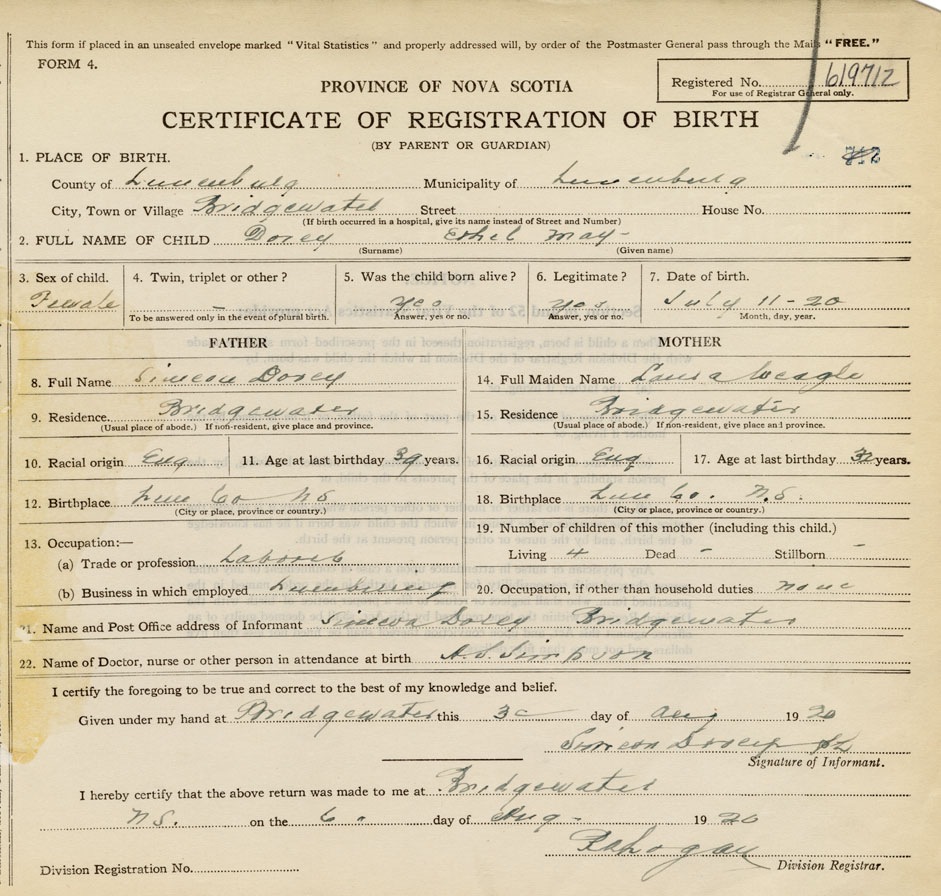 This form if placed in an unsealed envelope marked "Vital Statistics" and properly addressed will, by order of the Postmaster General pass through the Mails "FREE."
FORM 4.
PROVINCE OF NOVA SCOTIA
Registered No. 619712
For use of Registrar General only.
CERTIFICATE OF REGISTRATION OF BIRTH
(BY PARENT OR GUARDIAN)
1. PLACE OF BIRTH.
County of Lunenburg Municipality of Lunenburg
City, Town or Village Bridgewater Street House No.
(If birth occurred in a hospital, give its name instead of Street and Number)
2. FULL NAME OF CHILD Dorey Ethel May-
(Surname) (Given name)
3. Sex of child. 4. Twin, triplet or other? 5. Was the child born alive? 6. Legitimate? 7. Date of birth.
Female - Yes Yes July 11-20
To be answered only in the event of plural birth. Answer, yes or no. Answer, yes or no. Month, day, year.
FATHER MOTHER
8. Full Name Simeon Dorey 14. Full Maiden Name Laura Weagle
9. Residence Bridgewater 15. Residence Bridgewater
(Usual place of abode.) If non-resident, give place and province. (Usual place of abode.) If non-resident, give place and province.
10. Racial origin Eng 11. Age at last birthday 39 years. 16. Racial origin Eng 17. Age at last birthday years.
12. Birthplace Lun Co NS 18. Birthplace Lun Co. N.S.
(City or place, province or country.) (City or place, province or country.)
13. Occupation:— 19. Number of children of this mother (including this child.)
(a) Trade or profession Laborer Living 4 Dead - Stillborn -
(b) Business in which employed Lumbering 20. Occupation, if other than household duties none
21. Name and Post Office address of Informant Simeon Dorey Bridgewater
22. Name of Doctor, nurse or other person in attendance at birth Simpson
I certify the foregoing to be true and correct to the best of my knowledge and belief.
Given under my hand at Bridgewater this day of Aug 1920
Simeon Dorey
Signature of Informant.
I hereby certify that the above return was made to me at Bridgewater
N.S. on the 6 day of Aug- 1920
Division Registration No. Division Registrar.